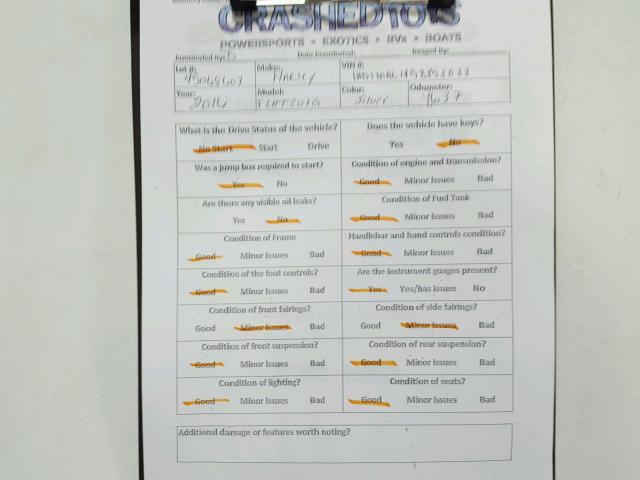 CRASHEDTOYS
POWERSPORTS • EXOTICS • RVs • BOATS
Inventoried By: Date Inventoried: Imaged By:
Lot #: Make: VIN #:
45068607 HARLEY
Year: Model: Color: Odometer:
2016 Silver
What is the Drive Status of the vehicle? Does the vehicle have keys?
No Start Start Drive Yes No
Was a jump box required to start? Condition of engine and transmission?
Yes No Good Minor Issues Bad
Are there any visible oil leaks? Condition of Fuel Tank
Yes No Good Minor Issues Bad
Condition of Frame Handlebar and hand controls condition?
Good Minor Issues Bad Good Minor Issues Bad
Condition of the foot controls? Are the instrument guages present?
Good Minor Issues Bad Yes Yes/has issues No
Condition of front fairings? Condition of side fairings?
Good Minor Issues Bad Good Minor Issues Bad
Condition of front suspension? Condition of rear suspension?
Good Minor Issues Bad Good Minor Issues Bad
Condition of lighting? Condition of seats?
Good Minor Issues Bad Good Minor Issues Bad
Additional damage or features worth noting?